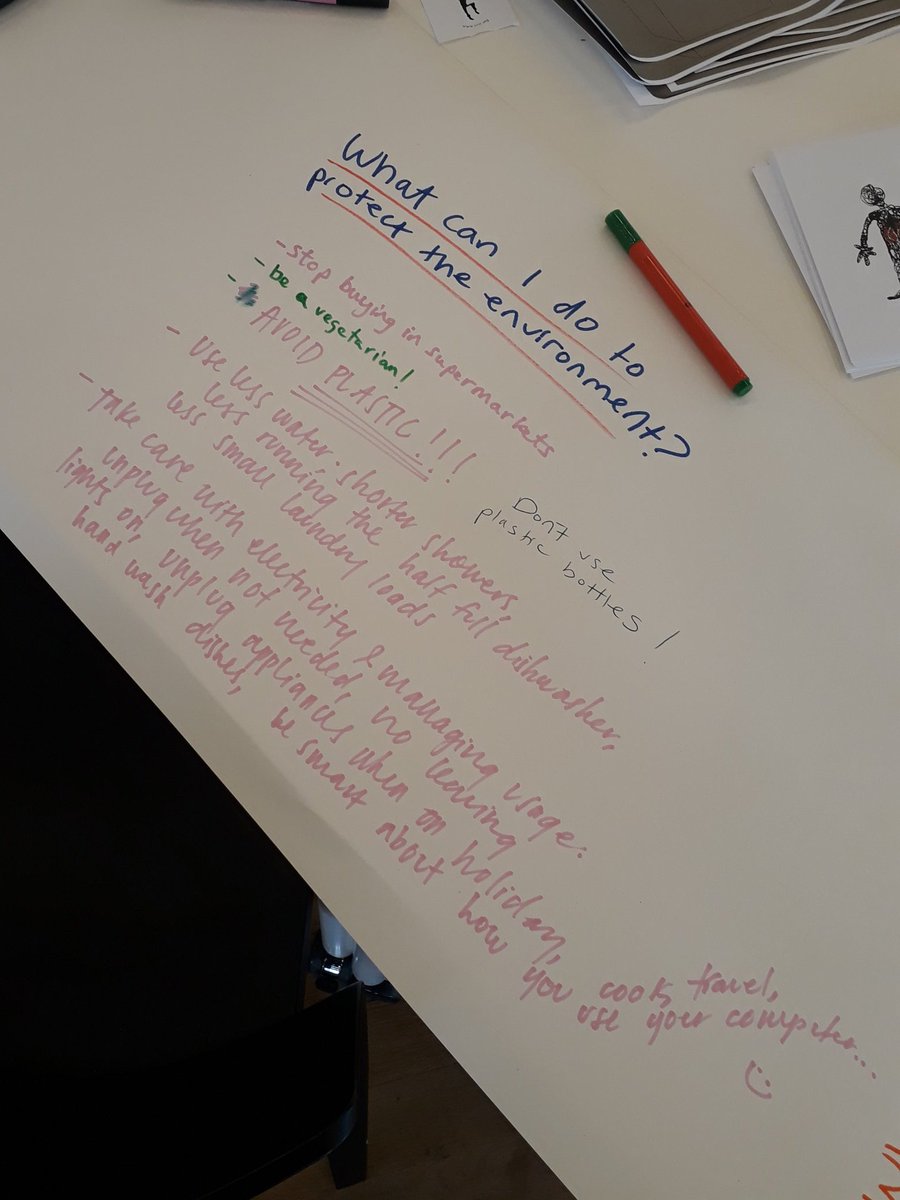 What can I do to
protect the environment?
- stop buying in supermarkets
- be a vegetarian!
- AVOID PLASTIC!!!
- use less water: shorter showers,
less running the half full dishwasher,
less small laundry loads
- take care with electricity & managing usage:
unplug when not needed, no leaving
lights on, unplug appliances when on holiday,
hand wash dishes, be smart about how you cook, travel,
use your computer...
Dont use
plastic bottles!